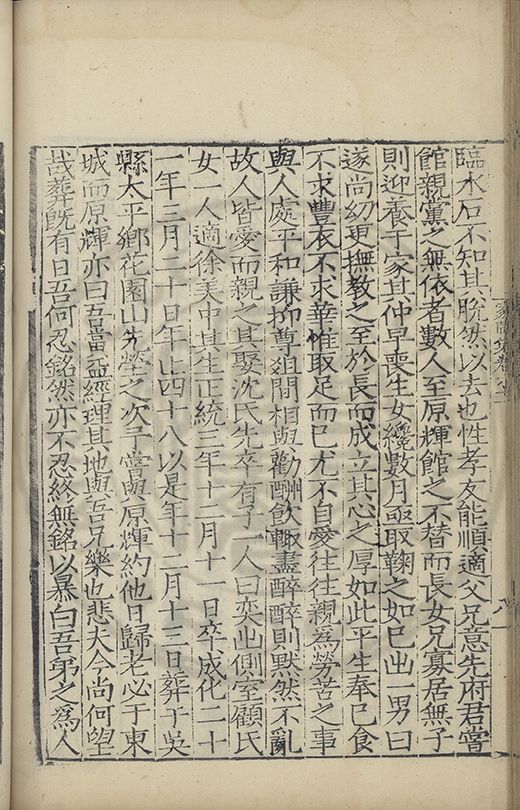 臨水石不知其脫然以去也性孝友能順適父兄意先府君嘗
館親黨之無依者數人至原輝館之不替而長女兄寡居無子
則迎養于家其仲早喪生女纔數月亟取鞠之如已出一男曰
遂尚幼更撫教之至於長而成立其心之厚如此平生奉已食
不求豐衣不求華惟取足而已尤不自愛往往親為勞苦之事
與人處平和謙抑尊俎間相與勸酬飲輙盡醉醉則默然不亂
故人皆愛而親之其娶沈氏先卒有子一人曰奕出側室顧氏
女一人適徐美中其生正統三年十二月十一日卒成化二十
一年三月二十日年止四十八以是年十二月十三日葬于吳
縣太平鄉花園山先塋之次予嘗與原輝約他日歸老必于東
城而原輝亦曰吾當益經理其地與吾兄樂也悲夫今尚何望
哉葬既有日吾何忍銘然亦不忍終無銘以暴白吾弟之為人